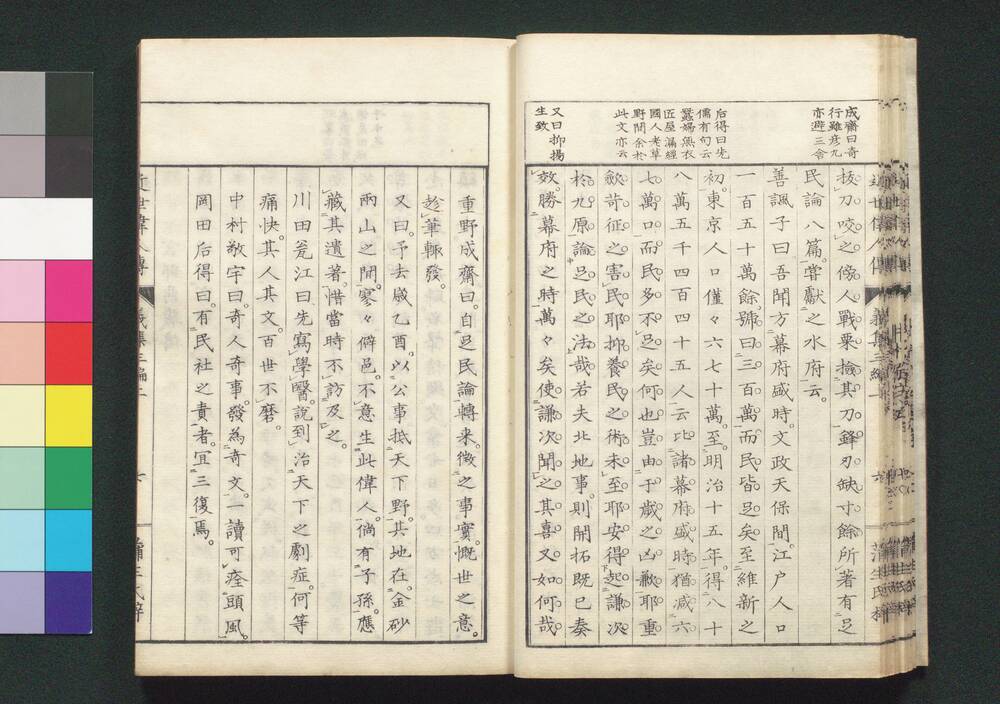 成齋曰奇
行雖彦九
亦避三舍
后得曰先
儒有句云
蠶婦無衣
匠屋漏經
國人老草
野間余於
此文亦云
又曰抑揚
生致
拔刀咬之傍人戰栗撿其刀鋒刃缺寸餘所著有足
民論八篇嘗獻之水府云
善諷子曰吾聞方幕府盛時文政天保間江戸人口
一百五十萬餘號曰三百萬而民皆足矣至維新之
初東京人口僅々六七十萬至明治十五年得八十
八萬五千四百四十五人云比諸幕府盛時猶减六
七萬口而民多不足矣何也豈由于歳之凶歉耶重
斂苛征之害民耶抑養民之術未至耶安得起謙次
於九原論足民之法哉若夫北地事則開拓既已奏
效勝幕府之時萬々矣使謙次聞之其喜又如何哉
重野成齋曰自足民論轉来徴之事實慨世之意
趁筆輙發
又曰予去歳乙酉以公事抵天下野其地在金砂
兩山之間寥々僻邑不意生此偉人倘有子孫應
藏其遺著惜當時不訪及之
川田瓮江曰先寫學醫說到治天下之劇症何等
痛快其人其文百世不磨
中村敬宇曰奇人奇事發為奇文一讀可痊頭風
岡田后得曰有民社之責者宜三復焉
近世偉人傳
義集三編上
六
蒲生氏梓